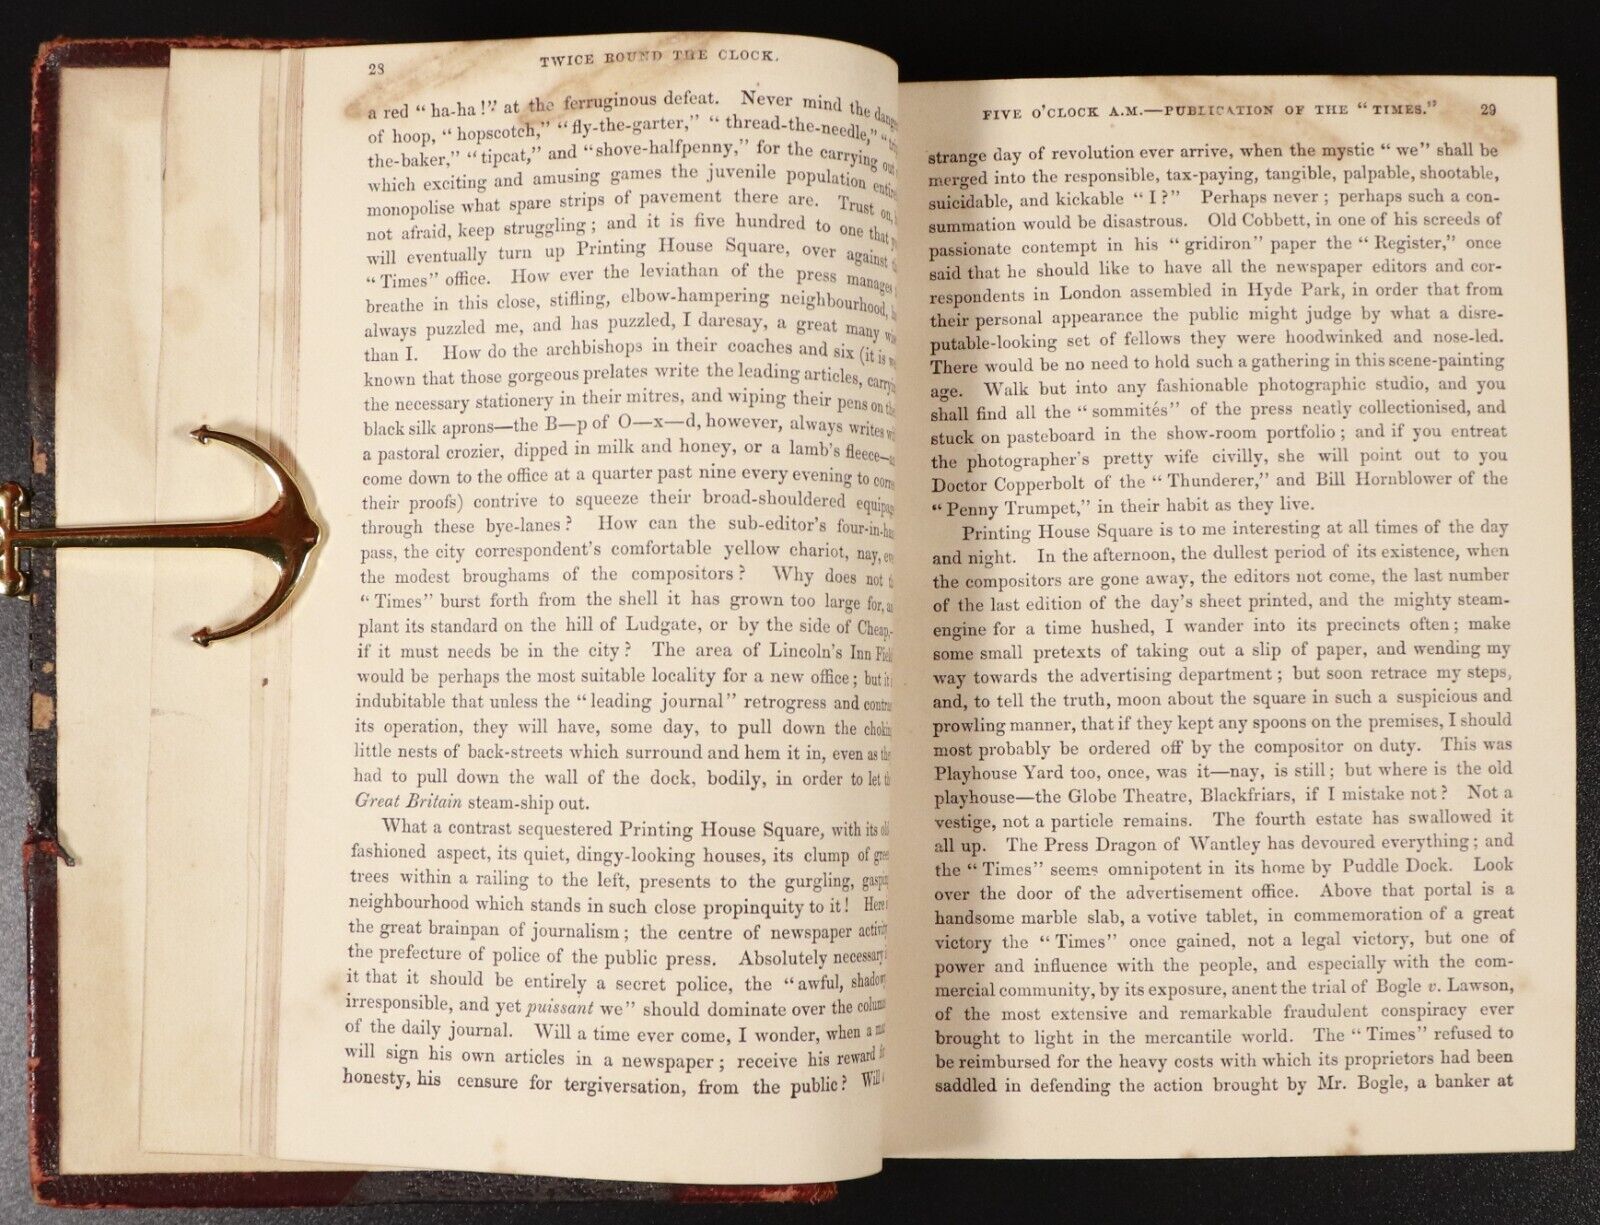 28
TWICE ROUND THE CLOCK.
a red "ha-ha!" at the ferruginous defeat. Never mind the
of hoop, "hopscotch," "fly-the-garter," "thread-the-needle,"
the-baker," "tipcat," and "shove-halfpenny," for the carrying
which exciting and amusing games the juvenile population
monopolise what spare strips of pavement there are. Trust on,
not afraid, keep struggling; and it is five hundred to one that
will eventually turn up Printing House Square, over against
"Times" office. How ever the leviathan of the press manages
breathe in this close, stifling, elbow-hampering neighbourhood,
always puzzled me, and has puzzled, I daresay, a great many
than I. How do the archbishops in their coaches and six (it is
known that those gorgeous prelates write the leading articles,
the necessary stationery in their mitres, and wiping their pens on
black silk aprons—the B—p of O—x—d, however, always writes
a pastoral crozier, dipped in milk and honey, or a lamb's fleece—
come down to the office at a quarter past nine every evening to
their proofs) contrive to squeeze their broad-shouldered
through these bye-lanes? How can the sub-editor's
pass, the city correspondent's comfortable yellow chariot, nay,
the modest broughams of the compositors? Why does not
"Times" burst forth from the shell it has grown too large for,
plant its standard on the hill of Ludgate, or by the side of Cheap,—
if it must needs be in the city? The area of Lincoln's Inn
would be perhaps the most suitable locality for a new office; but
indubitable that unless the "leading journal" retrogress and
its operation, they will have, some day, to pull down the
little nests of back-streets which surround and hem it in, even as
had to pull down the wall of the dock, bodily, in order to let
Great Britain steam-ship out.
What a contrast sequestered Printing House Square, with its
fashioned aspect, its quiet, dingy-looking houses, its clump of
trees within a railing to the left, presents to the gurgling,
neighbourhood which stands in such close propinquity to it! Here
the great brainpan of journalism; the centre of newspaper
the prefecture of police of the public press. Absolutely necessary
it that it should be entirely a secret police, the "awful,
irresponsible, and yet puissant we" should dominate over the
of the daily journal. Will a time ever come, I wonder, when a
will sign his own articles in a newspaper; receive his reward
honesty, his censure for tergiversation, from the public? Will
FIVE O'CLOCK A.M.—PUBLICATION OF THE "TIMES." 29
strange day of revolution ever arrive, when the mystic "we" shall be
merged into the responsible, tax-paying, tangible, palpable, shootable,
suicidable, and kickable "I?" Perhaps never; perhaps such a con-
summation would be disastrous. Old Cobbett, in one of his screeds of
passionate contempt in his "gridiron" paper the "Register," once
said that he should like to have all the newspaper editors and cor-
respondents in London assembled in Hyde Park, in order that from
their personal appearance the public might judge by what a disre-
putable-looking set of fellows they were hoodwinked and nose-led.
There would be no need to hold such a gathering in this scene-painting
age. Walk but into any fashionable photographic studio, and you
shall find all the "sommités" of the press neatly collectionised, and
stuck on pasteboard in the show-room portfolio; and if you entreat
the photographer's pretty wife civilly, she will point out to you
Doctor Copperbolt of the "Thunderer," and Bill Hornblower of the
"Penny Trumpet," in their habit as they live.
Printing House Square is to me interesting at all times of the day
and night. In the afternoon, the dullest period of its existence, when
the compositors are gone away, the editors not come, the last number
of the last edition of the day's sheet printed, and the mighty steam-
engine for a time hushed, I wander into its precincts often; make
some small pretexts of taking out a slip of paper, and wending my
way towards the advertising department; but soon retrace my steps,
and, to tell the truth, moon about the square in such a suspicious and
prowling manner, that if they kept any spoons on the premises, I should
most probably be ordered off by the compositor on duty. This was
Playhouse Yard too, once, was it—nay, is still; but where is the old
playhouse—the Globe Theatre, Blackfriars, if I mistake not? Not a
vestige, not a particle remains. The fourth estate has swallowed it
all up. The Press Dragon of Wantley has devoured everything; and
the "Times" seems omnipotent in its home by Puddle Dock. Look
over the door of the advertisement office. Above that portal is a
handsome marble slab, a votive tablet, in commemoration of a great
victory the "Times" once gained, not a legal victory, but one of
power and influence with the people, and especially with the com-
mercial community, by its exposure, anent the trial of Bogle v. Lawson,
of the most extensive and remarkable fraudulent conspiracy ever
brought to light in the mercantile world. The "Times" refused to
be reimbursed for the heavy costs with which its proprietors had been
saddled in defending the action brought by Mr. Bogle, a banker at